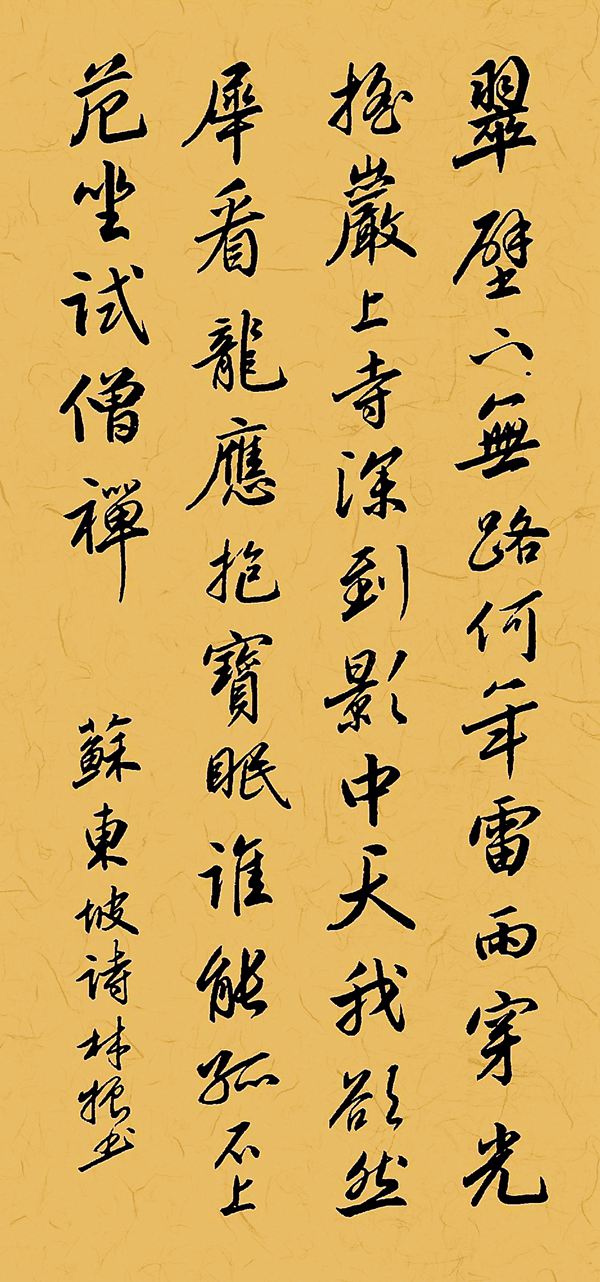 翠壁下無路何年雷雨穿光
摇巖上寺深到影中天我欲然
犀看龍應抱寶眠誰能孤石上
危坐試僧禪
蘇東坡詩林振书